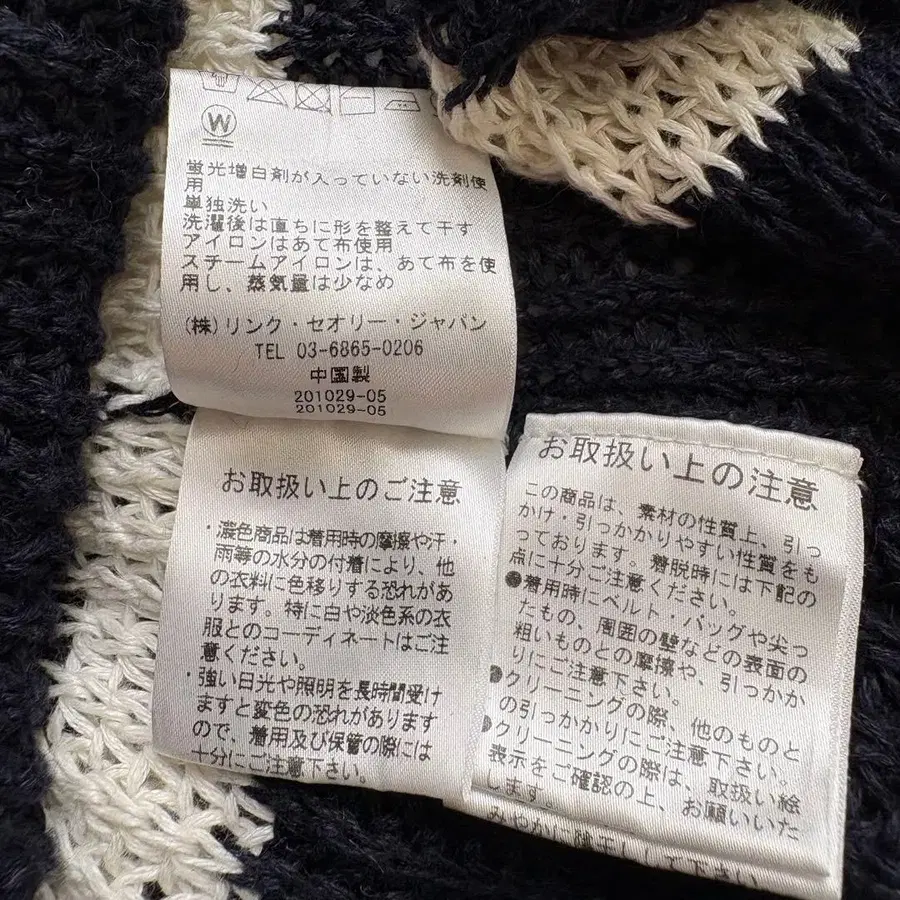 W
蛍光増白剤が入っていない洗剤使
用
単独洗い
洗濯後は直ちに形を整えて干す
アイロンはあて布使用
スチームアイロンは、あて布を使
用し、蒸気量は少なめ
(株)リンク・セオリー・ジャパン
TEL 03-6865-0206
中国製
201029-05
201029-05
お取扱い上のご注意
・濃色商品は着用時の摩擦や汗・
雨等の水分の付着により、他
の衣料に色移りする恐れがあ
ります。特に白や淡色系の衣
服とのコーディネートはご注
意ください。
・強い日光や照明を長時間受け
ますと変色の恐れがあります
ので、着用及び保管の際には
十分にご注意下さい。
お取扱い上の注意
この商品は、素材の性質上、引っ
かけ・引っかかりやすい性質をも
っております。着脱時には下記の
点に十分ご注意ください。
●着用時にベルト・バッグや尖っ
たもの、周囲の壁などの表面の
粗いものとの摩擦や、引っかか
りにご注意下さい。
●クリーニングの際、他のものと
の引っかかりにご注意下さい。
●クリーニングの際は、取扱い絵
表示をご確認の上、お願いいた
します。